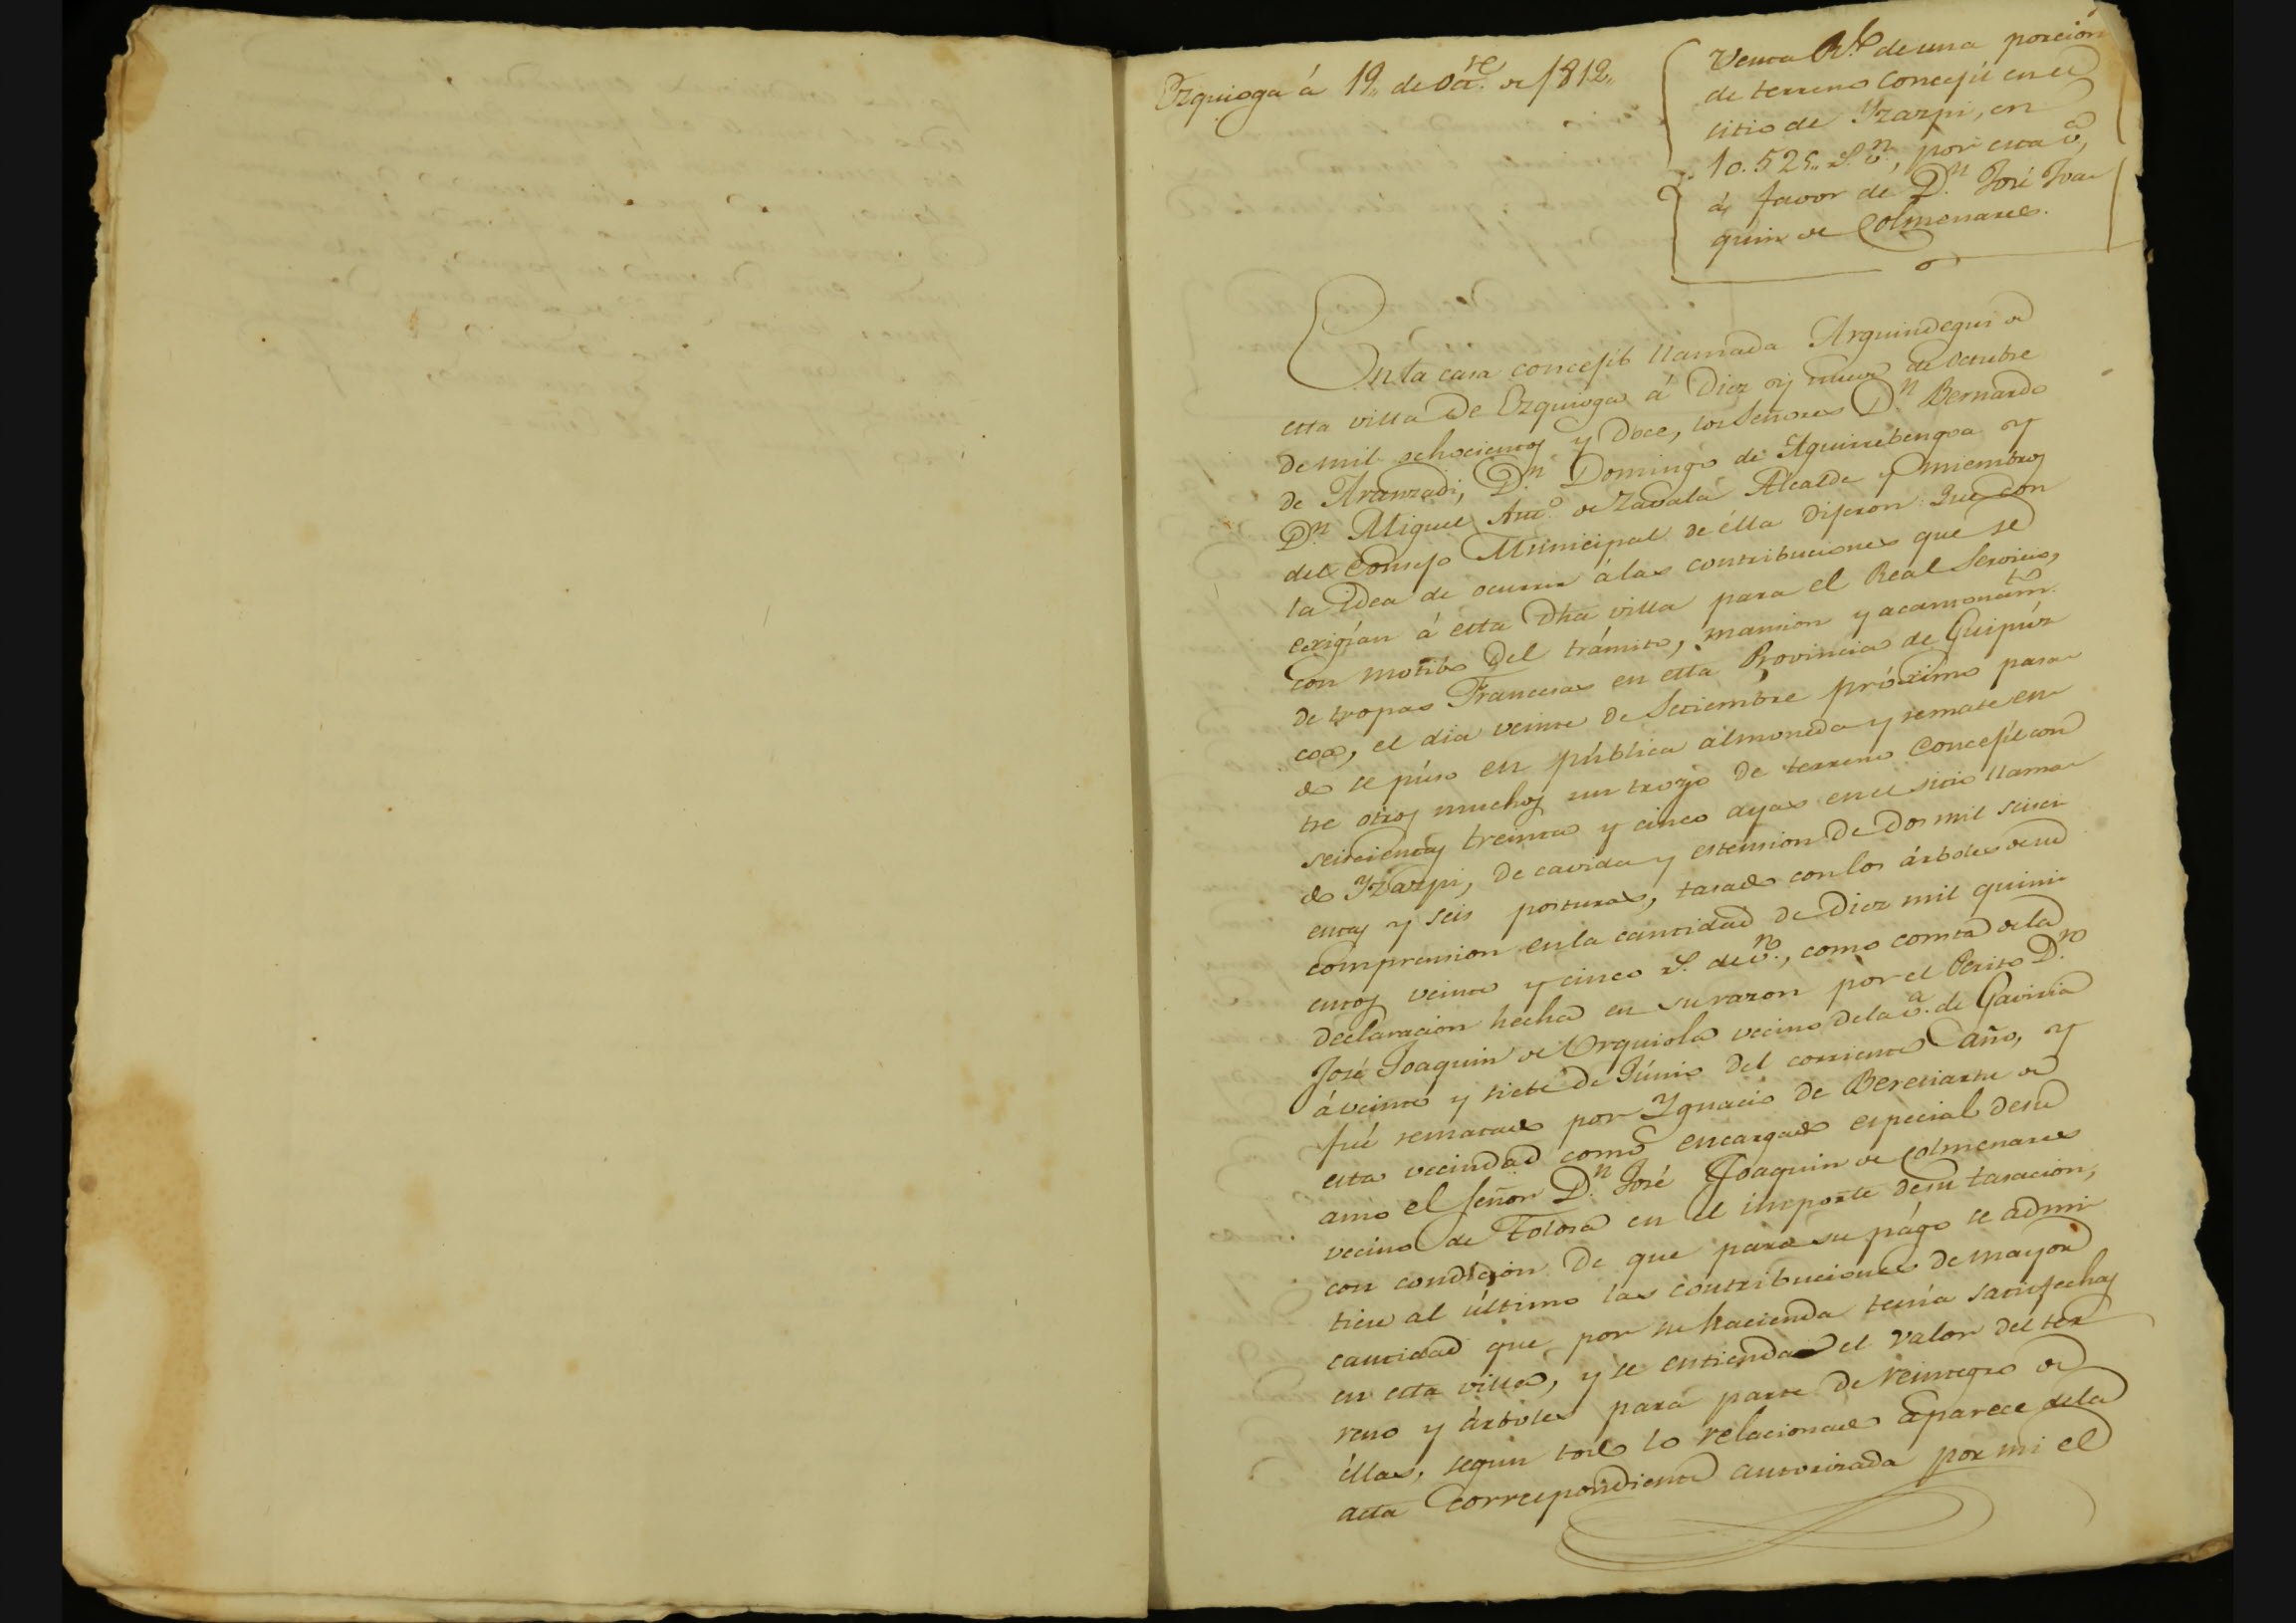 Ezquioga á 19,, de Oct.re de 1812,,
Venta Rl. de una porcion
de terreno Concejil en el
sitio de Yzazpi, en
10.525,, rs. vn., por esta va,
á favor de Dn. José Joa-
quin de Colmenares.
En la casa concejil llamada Arguindegui de
esta villa de Ezquioga á Diez y nueve de Octubre
de mil ochocientos y Doce, los Señores Dn. Bernardo
de Aranzadi, Dn. Domingo de Aguirrebengoa y
Dn. Miguel Anto. de Zavala Alcalde y miembros
del Consejo Municipal de élla Dijeron Que con
la idea de ocurrir á las contribuciones que se
exigían á esta Dha villa para el Real Servicio,
con motibo del trámito, mansion y acantonamto.
de tropas Francesas en esta Provincia de Guipúz
coa, el dia veinte de Setiembre próximo pasa-
do se púso en pública almoneda y remate en-
tre otros muchos un trozo de terreno Concejil con
seiscientos treinta y cinco ayas en el sitio llama-
do Yzazpi, de cavida y estension de Dos mil seisci
entas y seis posturas, tasado con los árboles de su
compreension en la cantidad de Diez mil quini-
entos veinte y cinco rs. de vn., como consta de la
declaracion hecha en su razon por el Perito Dn.
José Joaquin de Urquiola vecino de la va. de Gaviria
á veinte y siete de Június del corriente año, y
fué rematado por Ygnacio de Beretiartu de
esta vecindad como encargado especial de su
amo el Señor Dn. José Joaquin de Colmenares
vecino de Tolosa en el importe de su tasacion,
con condicion de que para su págo se admi-
tiese al último las contribuciones de mayor
cantidad que por su hacienda tenía satisfechas
en esta villa, y se entienda el valor del ter
reno y árboles para parte de reintegro de
éllas, segun todo lo relacionado aparece de la
acta correspondiente autorizada por mi el